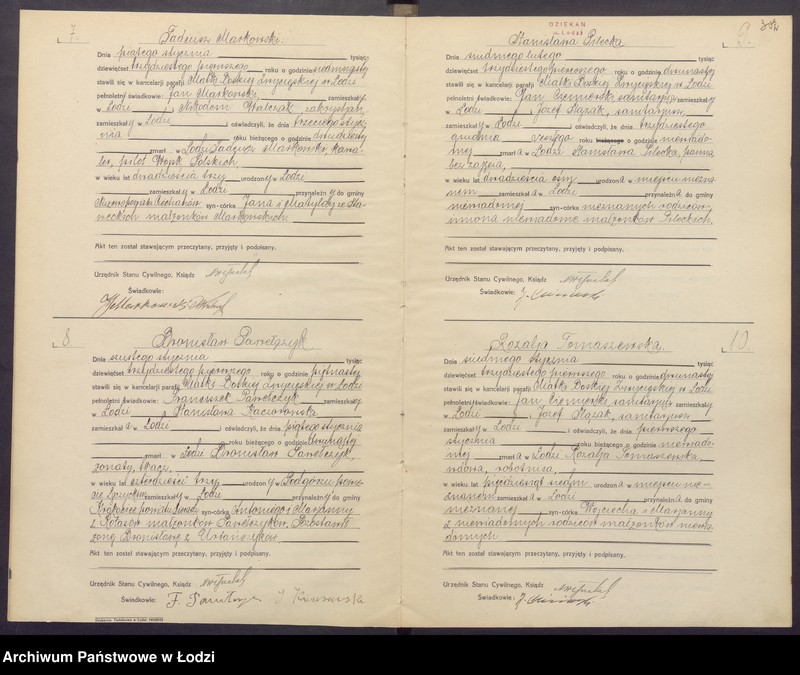 7.
Tadeusz Markowski.
Dnia piątego stycznia tysiąc
dziewięćset trzydziestego pierwszego roku o godzinie siedmnastej
stawili się w kancelarji parafji Matki Boskiej Zwycięskiej w Łodzi
Jan Markowski
pełnoletni świadkowie: zamieszkały
w Łodzi i Nikodem Walczak zakrystjan,
zamieszkały w Łodzi i oświadczyli, że dnia trzeciego stycz-
nia roku bieżącego o godzinie dwudziestej
zmarł w Łodzi Tadeusz Markowski, kawa-
ler, pilot Wojsk Polskich
w wieku lat dwadzieścia trzy urodzony w Łodzi
zamieszkały w Łodzi przynależny do gminy
syn-córka Jana i Matyldy ze Sta-
neckich małżonków Markowskich.
Akt ten został stawającym przeczytany, przyjęty i podpisany.
Urzędnik Stanu Cywilnego, Ksiądz
Świadkowie:
8.
Bronisław Pawełczyk
Dnia szóstego stycznia tysiąc
dziewięćset trzydziestego pierwszego roku o godzinie piętnastej
stawili się w kancelarji parafji Matki Boskiej Zwycięskiej w Łodzi
pełnoletni świadkowie: Franciszek Pawełczyk zamieszkały
w Łodzi i Stanisława
zamieszkała w Łodzi i oświadczyli, że dnia piątego stycznia
roku bieżącego o godzinie dwunastej
zmarł w Łodzi Bronisław Pawełczyk,
żonaty, tkacz,
w wieku lat czterdzieści trzy urodzony w Podgórzu powie-
cie Łęczyckim zamieszkały w Łodzi przynależny do gminy
syn-córka Antoniego i Marjanny
z małżonków Pawełczyków. Pozostawił
żonę Bronisławę z Urbańczyków.
Akt ten został stawającym przeczytany, przyjęty i podpisany.
Urzędnik Stanu Cywilnego, Ksiądz
Świadkowie:
DZIEKAN
w Łodzi
9.
Stanisława Pilecka
Dnia siódmego lutego tysiąc
dziewięćset trzydziestego pierwszego roku o godzinie dwunastej
stawili się w kancelarji parafji Matki Boskiej Zwycięskiej w Łodzi
pełnoletni świadkowie: Jan sanitarjusz zamieszkały
w Łodzi i Józef sanitarjusz
zamieszkały w Łodzi i oświadczyli, że dnia trzydziestego
grudnia zeszłego roku bieżącego o godzinie niewiado-
mej zmarła w Łodzi Stanisława Pilecka, panna
bez zajęcia,
w wieku lat dwadzieścia osiem urodzona w miejscu niezna-
nem zamieszkała w Łodzi przynależna do gminy
niewiadomej syn-córka nieznanych rodziców,
imiona niewiadome małżonków Pileckich.
Akt ten został stawającym przeczytany, przyjęty i podpisany.
Urzędnik Stanu Cywilnego, Ksiądz
Świadkowie:
10.
Rozalja Tomaszewska.
Dnia siódmego stycznia tysiąc
dziewięćset trzydziestego pierwszego roku o godzinie dwunastej
stawili się w kancelarji parafji Matki Boskiej Zwycięskiej w Łodzi
pełnoletni świadkowie: Jan sanitarjusz zamieszkały
w Łodzi i Józef sanitarjusz
zamieszkały w Łodzi i oświadczyli, że dnia pierwszego
stycznia roku bieżącego o godzinie niewiado-
mej zmarła w Łodzi Rozalja Tomaszewska,
wdowa, robotnica,
w wieku lat pięćdziesiąt siedm urodzona w miejscu nie-
znanem zamieszkała w Łodzi przynależna do gminy
nieznanej syn-córka Wojciecha i Marjanny
z niewiadomych rodziców małżonków niewia-
domych.
Akt ten został stawającym przeczytany, przyjęty i podpisany.
Urzędnik Stanu Cywilnego, Ksiądz
Świadkowie:
Archiwum Państwowe w Łodzi